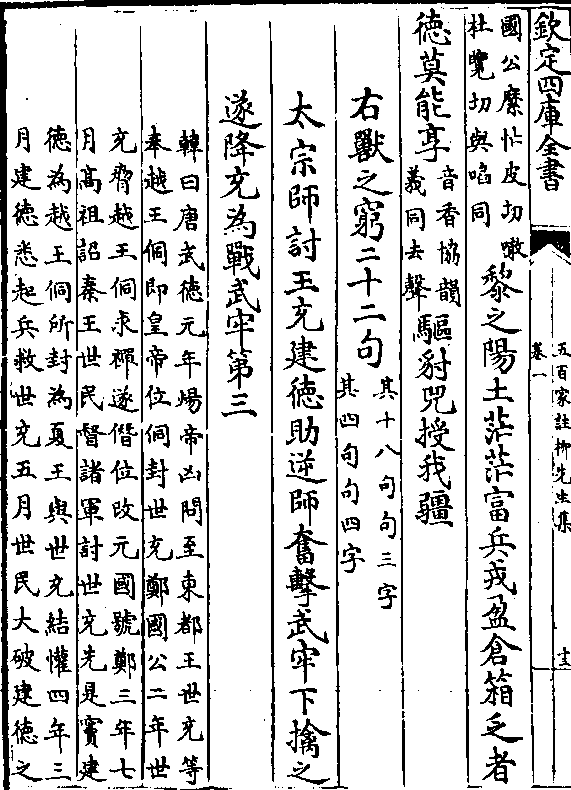 欽定四庫全書
五百家註柳先生集
卷一
十三
國公麋忙皮切噉
杜覽切與啗同
黎之陽土茫茫富兵戎盈倉箱乏者
德莫能享
音香協韻
義同去聲
驅豺兕授我疆
右獸之窮二十二句
其十八句句三字
其四句句四字
太宗師討王充建德助逆師奮擊武牢下擒之
遂降充為戰武牢第三
韓曰唐武德元年煬帝凶問至東都王世充等
奉越王侗即皇帝位侗封世充鄭國公二年世
充脅越王侗求禪遂僭位改元國號鄭三年七
月高祖詔秦王世民督諸軍討世充先是竇建
德為越王侗所封為夏王與世充結懽四年三
月建德悉起兵救世充五月世民大破建德之